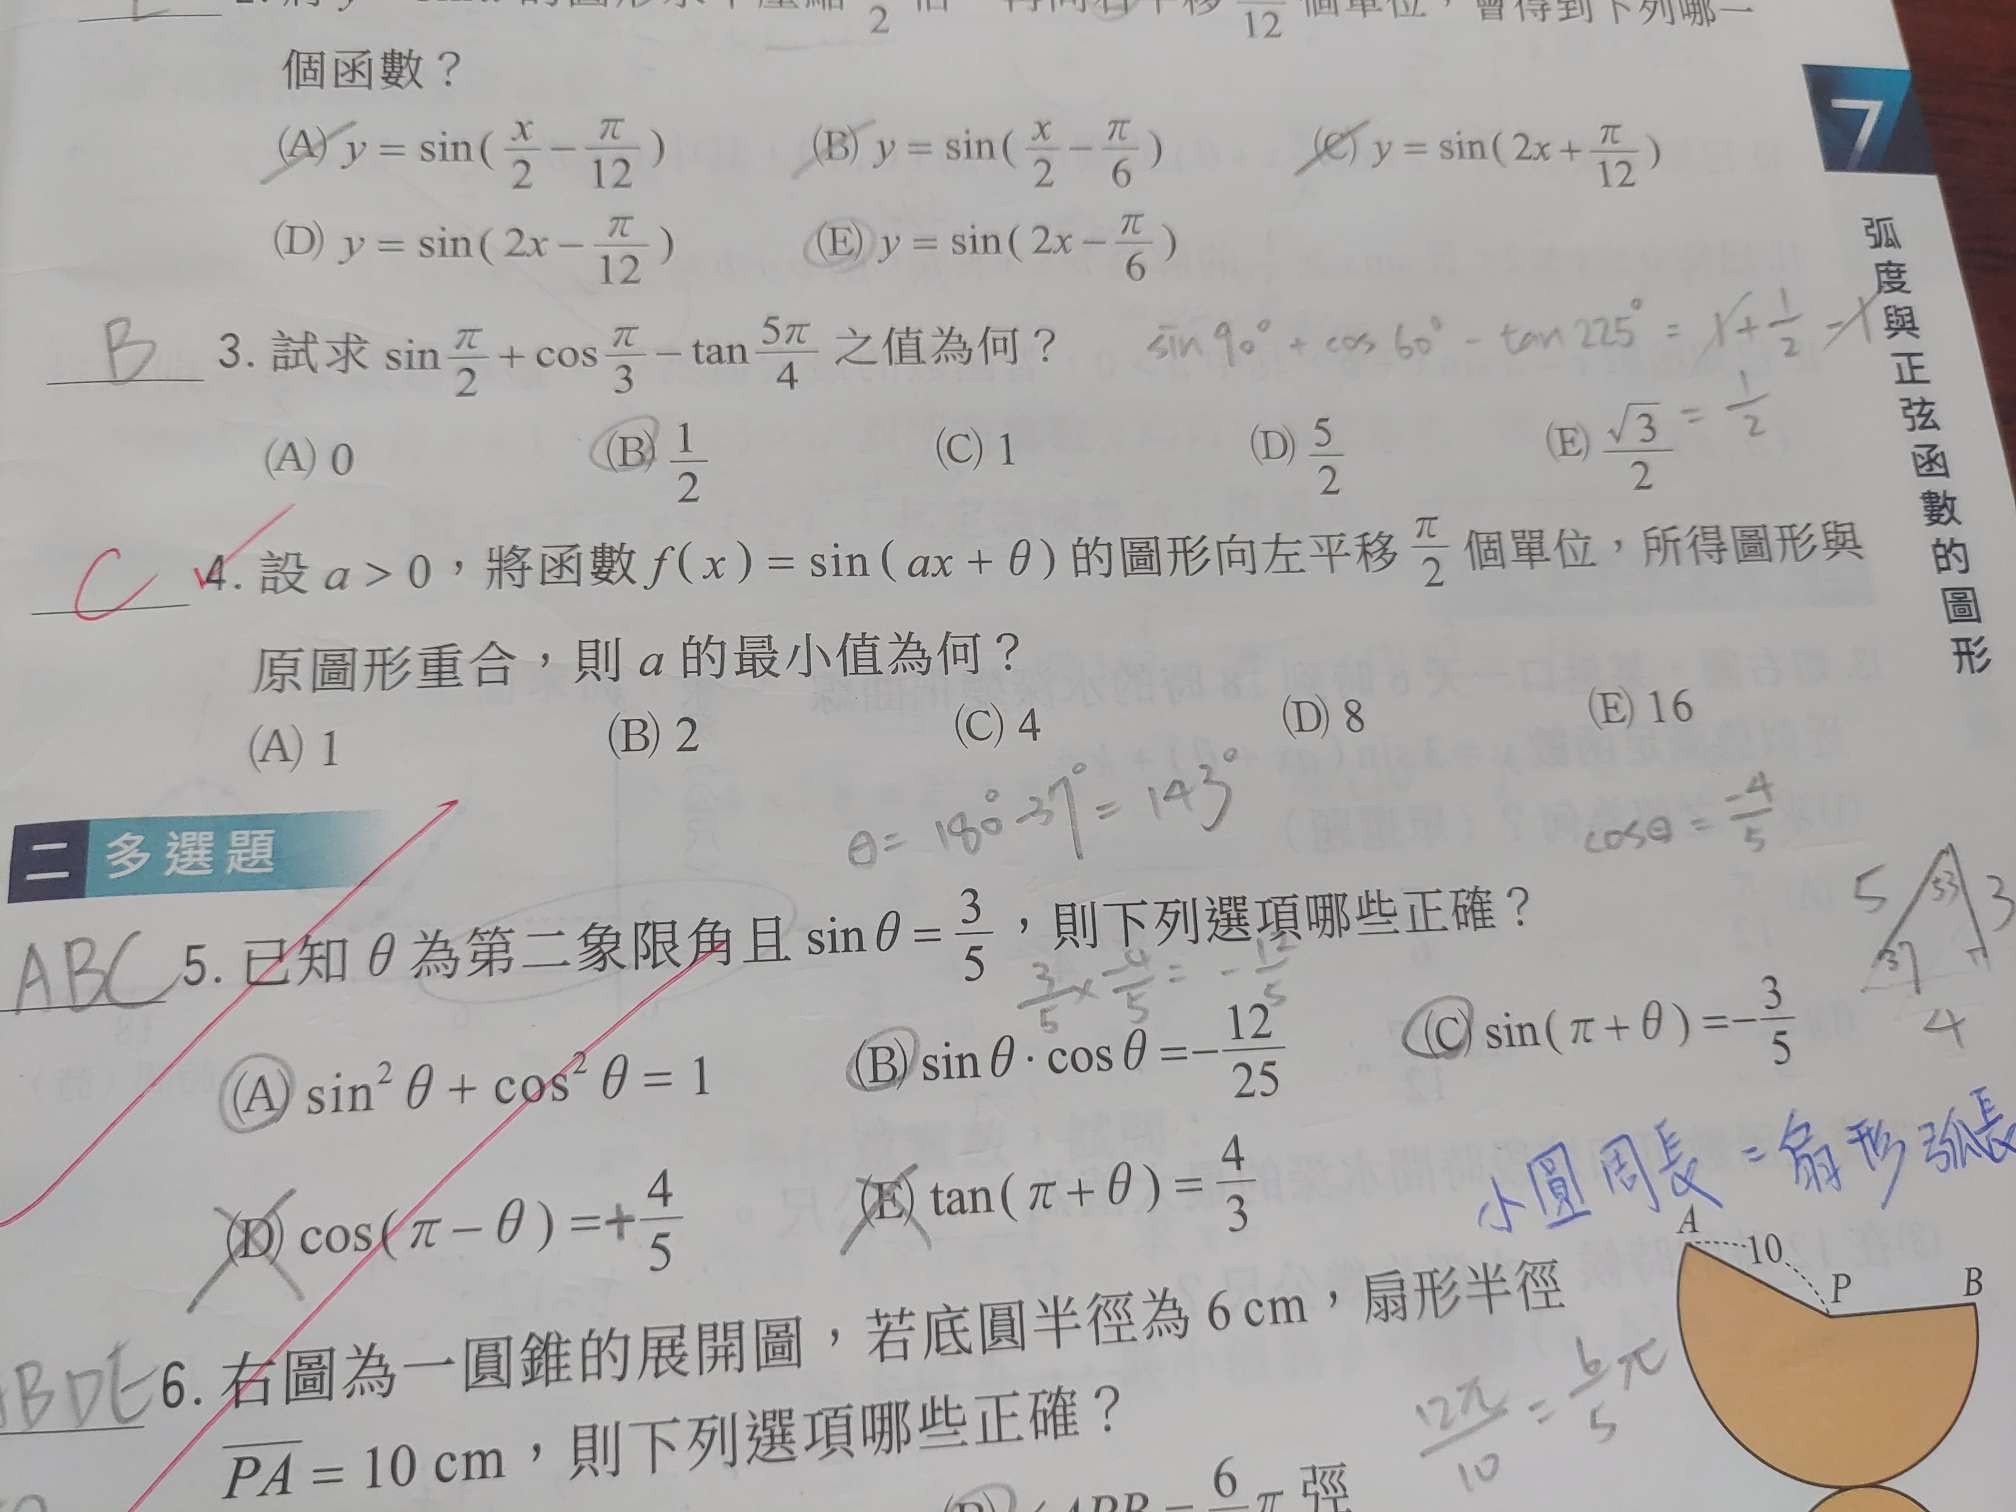 個函數？
(A) y = sin( x/2 − π/12 ) (B) y = sin( x/2 − π/6 ) (C) y = sin( 2x + π/12 )
(D) y = sin( 2x − π/12 ) (E) y = sin( 2x − π/6 )
B 3. 試求 sin π/2 + cos π/3 − tan 5π/4 之值為何？ sin 90° + cos 60° − tan 225° = 1 + 1/2 − 1
= 1/2
(A) 0 (B) 1/2 (C) 1 (D) 5/2 (E) √3/2
C 4. 設 a > 0，將函數 f( x ) = sin( ax + θ ) 的圖形向左平移 π/2 個單位，所得圖形與
原圖形重合，則 a 的最小值為何？
(A) 1 (B) 2 (C) 4 (D) 8 (E) 16
θ = 180° − 37° = 143° cosθ = −4/5
二 多選題
ABC 5. 已知 θ 為第二象限角且 sin θ = 3/5，則下列選項哪些正確？
3/5 × −4/5 = − 12/5
5 53 3 37 4
(A) sin² θ + cos² θ = 1 (B) sin θ · cos θ = − 12/25 (C) sin( π + θ ) = − 3/5
(D) cos( π − θ ) = + 4/5 (E) tan( π + θ ) = 4/3
小圓周長 = 扇形弧長
BDE 6. 右圖為一圓錐的展開圖，若底圓半徑為 6 cm，扇形半徑
PA = 10 cm，則下列選項哪些正確？
12π/10 = 6/5 π
A 10 P B
7
弧度與正弦函數的圖形